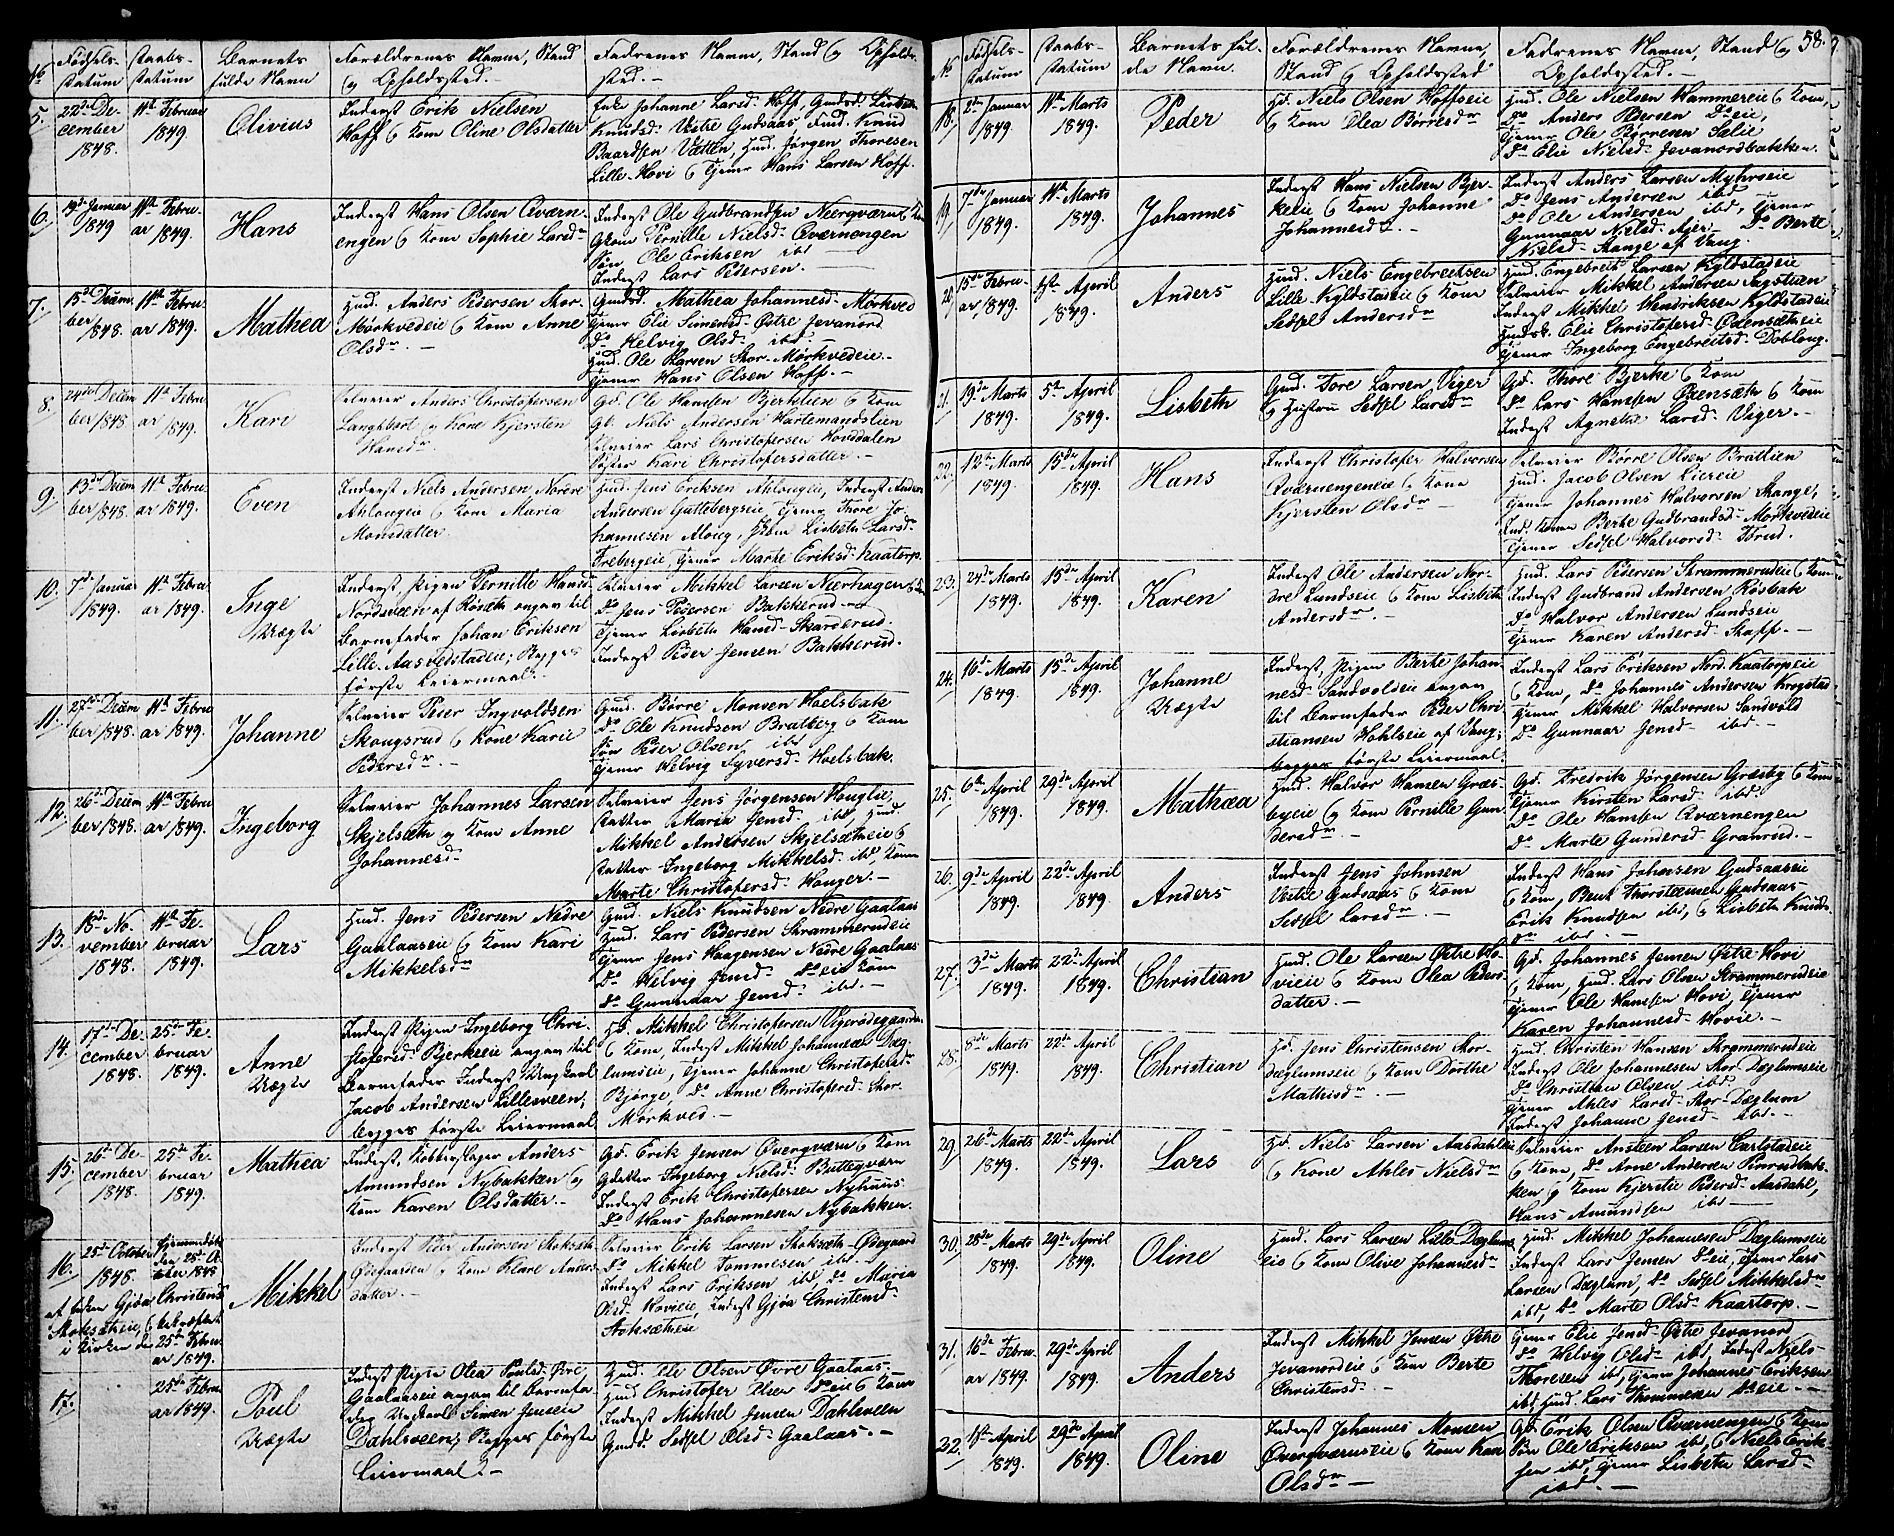 58.
No
Fødsels-
datum
Daabs-
datum
Barnets
fulde Navn
Forældrenes Navne, Stand
og Opholdssted.-
Faddrenes Navne, Stand og Opholds-
sted.-
5.
22de De-
cember
1848.
11te Februar
1849.
Olivius
Inderst Erik Nielsen
Hoff & Kone Oline Olsdatter
Enke Johanne Larsd. Hoff, Gudsd. Lisbeth
Knudsd. Vestre Gudsaas, Knud
Baardsen Vætten, Huusmd. Jørgen Thoresen
Lille-Hovi & Tjener Hans Larsen Hoff.
6.
19de Januar
1849
11te Febru-
ar 1849.
Hans
Inderst Hans Olsen Qværn-
engen & Kone Sophie Larsdr
Inderst Ole Gudbrandsen Neergværn & Kone
Pernille Nielsd. Qværnengen
Søn Ole Eriksen ibd
Inderst Lars Pedersen.
7.
15de Decem
ber 1848.
11te Febru
ar 1849.
Mathea
Huusmd. Anders Pedersen Stor-
Mørkvedeie & Kone Anne
Olsdr.-
Gaardsd. Mathea Johannesd. Mørkved
Tjener Elie Simensd. Østre Jevanord
Do Helvig Olsd. ibd.-
Huusmd. Ole Larsen Stor-Mørkvedeie.-
Tjener Hans Olsen Hoff.-
8.
24de Decem
ber 1848
11te Febru
ar 1849.
Kari
Selveier Anders Christofersen
Langkbort og Kone Kjersten
Hansdr
Gd. Ole Hansen Bjerkelien & Kone
Gb. Niels Andersen Hartemandslien
Selveier Lars Christofersen Houddalen
Søster Kari Christofersdatter.-
9.
13de Decem
ber 1848.
11te Febru-
ar 1849.
Even
Inderst Niels Andersen Nordre
Ahlougeie & Kone Maria
Monsdatter
Huusmd. Jens Eriksen Ahlougeie, Inderst Anders
Andersen Guttebergseie, Tjener Thore Jo-
hannesen Aloug, Kone Lisbeth Larsdr
Frebergeie, Tjener Marte Eriksd. Kaatorp.
10.
7de Januar
1849.
11te Febru
ar 1849.
Inge
Uægte
Inderst Pigen Pernille Hansd.
Nordsveen af Røseth angav til
Barnefader Johan Eriksen
Lille-Aasvedstadeie; Begges
første Leiermaal.
Selveier Mikkel Larsen Neerhagen & Kone
Do Jens Pedersen Bakkerud
Tjener Lisbeth Hansd. Skarderud.
Inderst Peder Jensen Bakkerud.
11.
27de Decem
ber 1848.
11te Febru
ar 1849.
Johanne
Selveier Peder Ingvoldsen
Skougsrud & Kone Karie
Pedersdr.-
Gaardmd. Børre Monsen Hoelsbak
Do Ole Knudsen Bratberg & Kone
Søn Peder Olsen ibd
Tjener Helvig Syversd. Hoelsbak.
12.
26de Decem
ber 1848.
11te Febru
ar 1849.
Ingeborg
Selveier Johannes Larsen
Skjelsæth og Kone Anne
Johannesd.
Selveier Jens Jørgensen Houglie,
Datter Maria Jensd. ibd Huusmd.
Mikkel Andersen Skjelsætheie &
Datter Ingeborg Mikkelsd. ibd, Kone
Marte Christofersd. Houger.-
13.
18de No-
vember
1848.
11te Fe-
bruar
1849.
Lars
Huusmd. Jens Pedersen Nedre
Gaalaaseie & Kone Kari
Mikkelsdr
Gaardmd. Niels Knudsen Nedre Gaalaas
Huusmd. Lars Pedersen Skrammerudeie
Tjener Jens Haagensen Nedre Gaalaas
Do Helvig Jensd. Do eie Kone
Do Gunnaar Jensd. ibd.-
14.
17de De-
cember
1848.
25de Fe-
bruar
1849.
Anne
Uægte
Inderst Pigen Ingeborg Chri-
stofersd. Bjerkeeie angav til
Barnefader Inderst Ungkarl
Jacob Andersen Lillesveen;
begges første Leiermaal
Gd. Mikkel Christofersen Vigerødegaarden
& Kone, Inderst Mikkel Johannesen Dæg-
lumseie, Tjener Johanne Christofersdr
Bjørge, Do Anne Christofersd. Stor-
Mørkved.-
15.
26de De-
cember
1848.
25de Fe-
bruar
1849.
Mathea
Inderst, Kobberslager Anders
Amundsen Nybakken og
Kone Karen Olsdatter.-
Gd. Erik Jensen Øvergværn & Kone
Gdatter Ingeborg Nielsd. Buttegværn
Inderst Erik Christofersen Nyhuus.
Do Hans Johannesen Nybakken.
16.
25de October
1848.
af Gjøa
Stoksætheie, &
i Kirken den
Hjemmedøbt
den 25de Oc-
tober 1848
Christens
bekræftet
25de Febru-
ar 1849.
Mikkel
Inderst Peder Andersen Stoksæth
Ødegaarden & Kone Klare Anders-
datter.-
Selveier Erik Larsen Stoksæth-Ødegaard
Do Mikkel Tommesen ibd.-
Inderst Lars Eriksen ibd Do Maria
Olsd. Hovieie, Inderst Gjøa Christensd.
Stoksætheie
17.
25de Febru-
ar 1849.
Poul
Uægte
Inderst Pigen Olea Poulsd. Øvre
Gaalaaseie angav til Barnefa-
der Ungkarl Simen Jensen
Dahlsveen; Begges første
Leiermaal.-
Huusmd. Ole Olsen Øvre Gaalaas-
Huusmd Christofer Olsen Do eie & Kone
Inderst Mikkel Jensen Dahlsveen
Gaardsd. Sedsel Olsd. Gaalaas.-
No
Fødsels-
datum
Daabs-
datum
Barnets ful-
de Navn.
Forældrenes Navne,
Stand & Opholdssted
Faddrenes Navne, Stand og
Opholdssted.-
18.
2den Januar
1849.
11te Marts
1849.
Peder
Gd. Niels Olsen Hoffseie
& Kone Olea Børresdr
Huusmd. Ole Nielsen Hammereie & Kone,
Do Anders Pedersen Do eie,
Tjener Ole Børresen Sælie
Do Elie Nielsd. Jevanordbakken.
19.
7de Januar
1849.
11te Marts
1849.
Johannes
Inderst Hans Nielsen Bjer-
keeie & Kone Johanne
Johannesd.-
Inderst Anders Larsen Myhrseie
Do Jens Andersen ibd
Do Ole Andersen ibd, Tjener
Gunnaar Nielsd. Ajer.- Do Berte
Nielsd. Stange af Vang.
20.
15de Febru-
ar 1849.
5te April
1849.
Anders
Huusmd. Niels Engebretsen
Lille-Kyldstadeie & Kone
Sedsel Andersdr
Huusmd. Engebret Larsen Kyldstadeie
Selveier Mikkel Andersen Sagstuen
Inderst Mikkel Hendriksen Kyldstadeie
Huusk. Elie Christofersd. Oxensætheie
Tjener Ingeborg Engebretsd. Doblong.
21.
19de Marts
1849.
5te April
1849.
Lisbeth
Gd. Tore Larsen Viger
og Hustru Sedsel Larsdr
Gd. Thore Bjerke & Kone
Do Lars Hansen Oxensæth & Kone
Inderst Agnethe Larsd. Viger.-
22.
12te Marts
1849.
15de April
1849.
Hans
Inderst Christofer Halvorsen
Qværnengeneie & Kone
Kjersten Olsdr
Selveier Børre Olsen Brattlien
Huusmd. Jacob Olsen Liereie
Tjener Johannes Halvorsen Stange,
Ind. Kone Berte Gudbrandsd. Mørkvedeie
Tjener Sedsel Halvorsd. Torud.
23.
24de Marts
1849.
15de April
1849.
Karen
Inderst Ole Andersen Nor-
dre Lundseie & Kone Lisbeth
Andersdr.-
Huusmd. Lars Pedersen Skrammerudeie & Kone
Inderst Gudbrand Andersen Røsbak
Do Halvor Andersen Lundseie
Tjener Karen Andersd. Skaff.-
24.
10de Marts
1849.
15de April
1849.
Johanne
Uægte
Inderst Pigen Berte Johan-
nesd. Sandvoldeie angav
til Barnefader Peder Chri-
stiansen Hohlseie af Vang;
begges første Leiermaal.
Inderst Lars Eriksen Nord. Kaatorpeie
& Kone, Do Johannes Andersen Krogstad
Tjener Mikkel Halvorsen Sandvold
Do Gunnaar Jensd. ibd.-
25.
6te April
1849.
29de April
1849.
Mathæa
Huusmd. Halvor Hansen Græs-
byeie & Kone Pernille Gun-
dersdr.-
Gd. Fredrik Jørgensen Græsby & Kone
Tjener Kirsten Larsd. ibd.
Do Ole Hansen Qværnengen
Do Marte Gundersd. Granrud.-
26.
9de April
1849.
22de April
1849.
Anders
Inderst Jens Johnsen
Vestre Gudsaas & Kone
Sedsel Larsdr.-
Inderst Hans Johansen Gudsaaseie
& Kone, Bent Thorstensen Gudsaas-
Erik Knudsen ibd, & Lisbeth Knuds-
dr ibd.-
27.
3de Marts
1849.
22de April
1849.
Christian
Huusmd. Ole Larsen Østre Ho-
vieie & Kone Olea Peders-
datter.-
Gd. Johannes Jensen Østre Hovi
& Kone, Huusmd. Lars Olsen Skrammerudeie
Tjener Ole Hansen Hovi, Tjener
Karen Johannesd. Hovie.-
28.
8de Marts
1849.
22de April
1849.
Christian
Gd. Jens Christensen Stor-
Dæglumseie & Kone Dorthe
Mathisdr.-
Huusmd. Christen Hansen Skrammerudeie
Inderst Ole Johannesen Stor-Dæglumseie
Do Christian Olsen ibd.
Tjener Ahles Larsd. Stor-Dæglum
Inderst Johanne Jensd. ibd.-
29.
26de Marts
1849.
22de April
1849.
Lars
Gd. Niels Larsen Aasdahleie
& Kone Ahles Nielsdr
Selveier Ansteen Larsen Carlstadeie
& Kone, Do Arne Andersen Finrudbak-
ken & Kone Kjerstie Pedersd. Aasdahl,
Hans Amundsen ibd
30.
28de Marts
1849.
29de April
1849.
Oline
Huusmd. Lars Larsen Lille Dæglums-
eie & Kone Olive Johannesdr
Huusmd. Mikkel Johannesen Dæglumseie
Inderst Lars Jensen Do eie, Tjener Lars
Larsen Dæglum, Do Sedsel Mikkelsdr
ibd, Do Marte Olsd. Kaartorp.-
31.
16de Febru-
ar 1849.
29de April
1849.
Anders
Inderst Mikkel Jensen Østre
Jevanordeie & Kone Berte
Christensd.-
Tjener Elie Jensd. Østre Jevanord
Do Helvig Olsd. ibd, Inderst Niels
Thoresen ibd, Tjener Johannes Eriksen
ibd, Huusmd. Lars Thommesen Do eie.-
32.
1ste April
1849.
29de April
1849.
Oline
Inderst Johannes Monsen
Øvergværnseie & Kone Kari
Olsdr.-
Gd. Erik Olsen Qværnengen & Kone
Søn Ole Eriksen ibd, & Niels Erik-
sen ibd, Tjener Lisbeth Larsd.
ibd.-